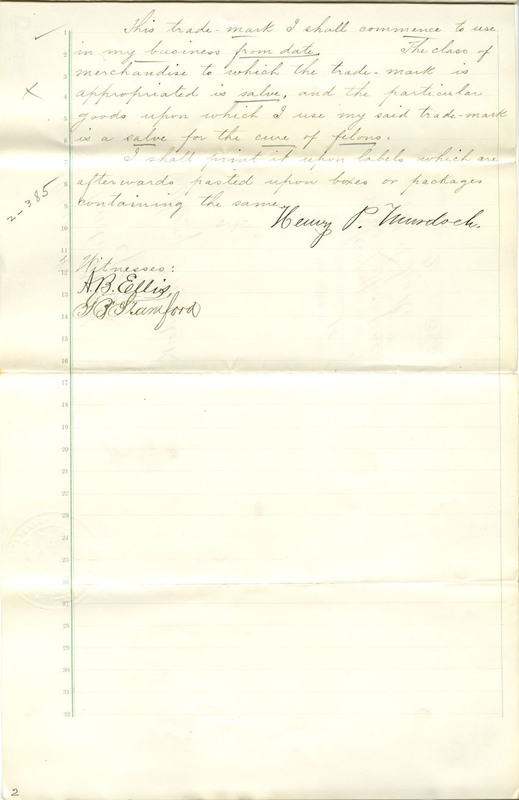 This trade-mark I shall commence to use
in my business from date. The class of
merchandise to which the trade-mark is
appropriated is salve, and the particular
goods upon which I use my said trade-mark
is a salve for the cure of felons.
I shall print it upon labels which are
afterwards pasted upon boxes or packages
containing the same.
Henry P. Murdoch.
Witnesses:
A. B. Ellis,
Stanford
x
2-385
1
2
3
4
5
6
7
8
9
10
11
12
13
14
15
16
17
18
19
20
21
22
23
24
25
26
27
28
29
30
31
32
2